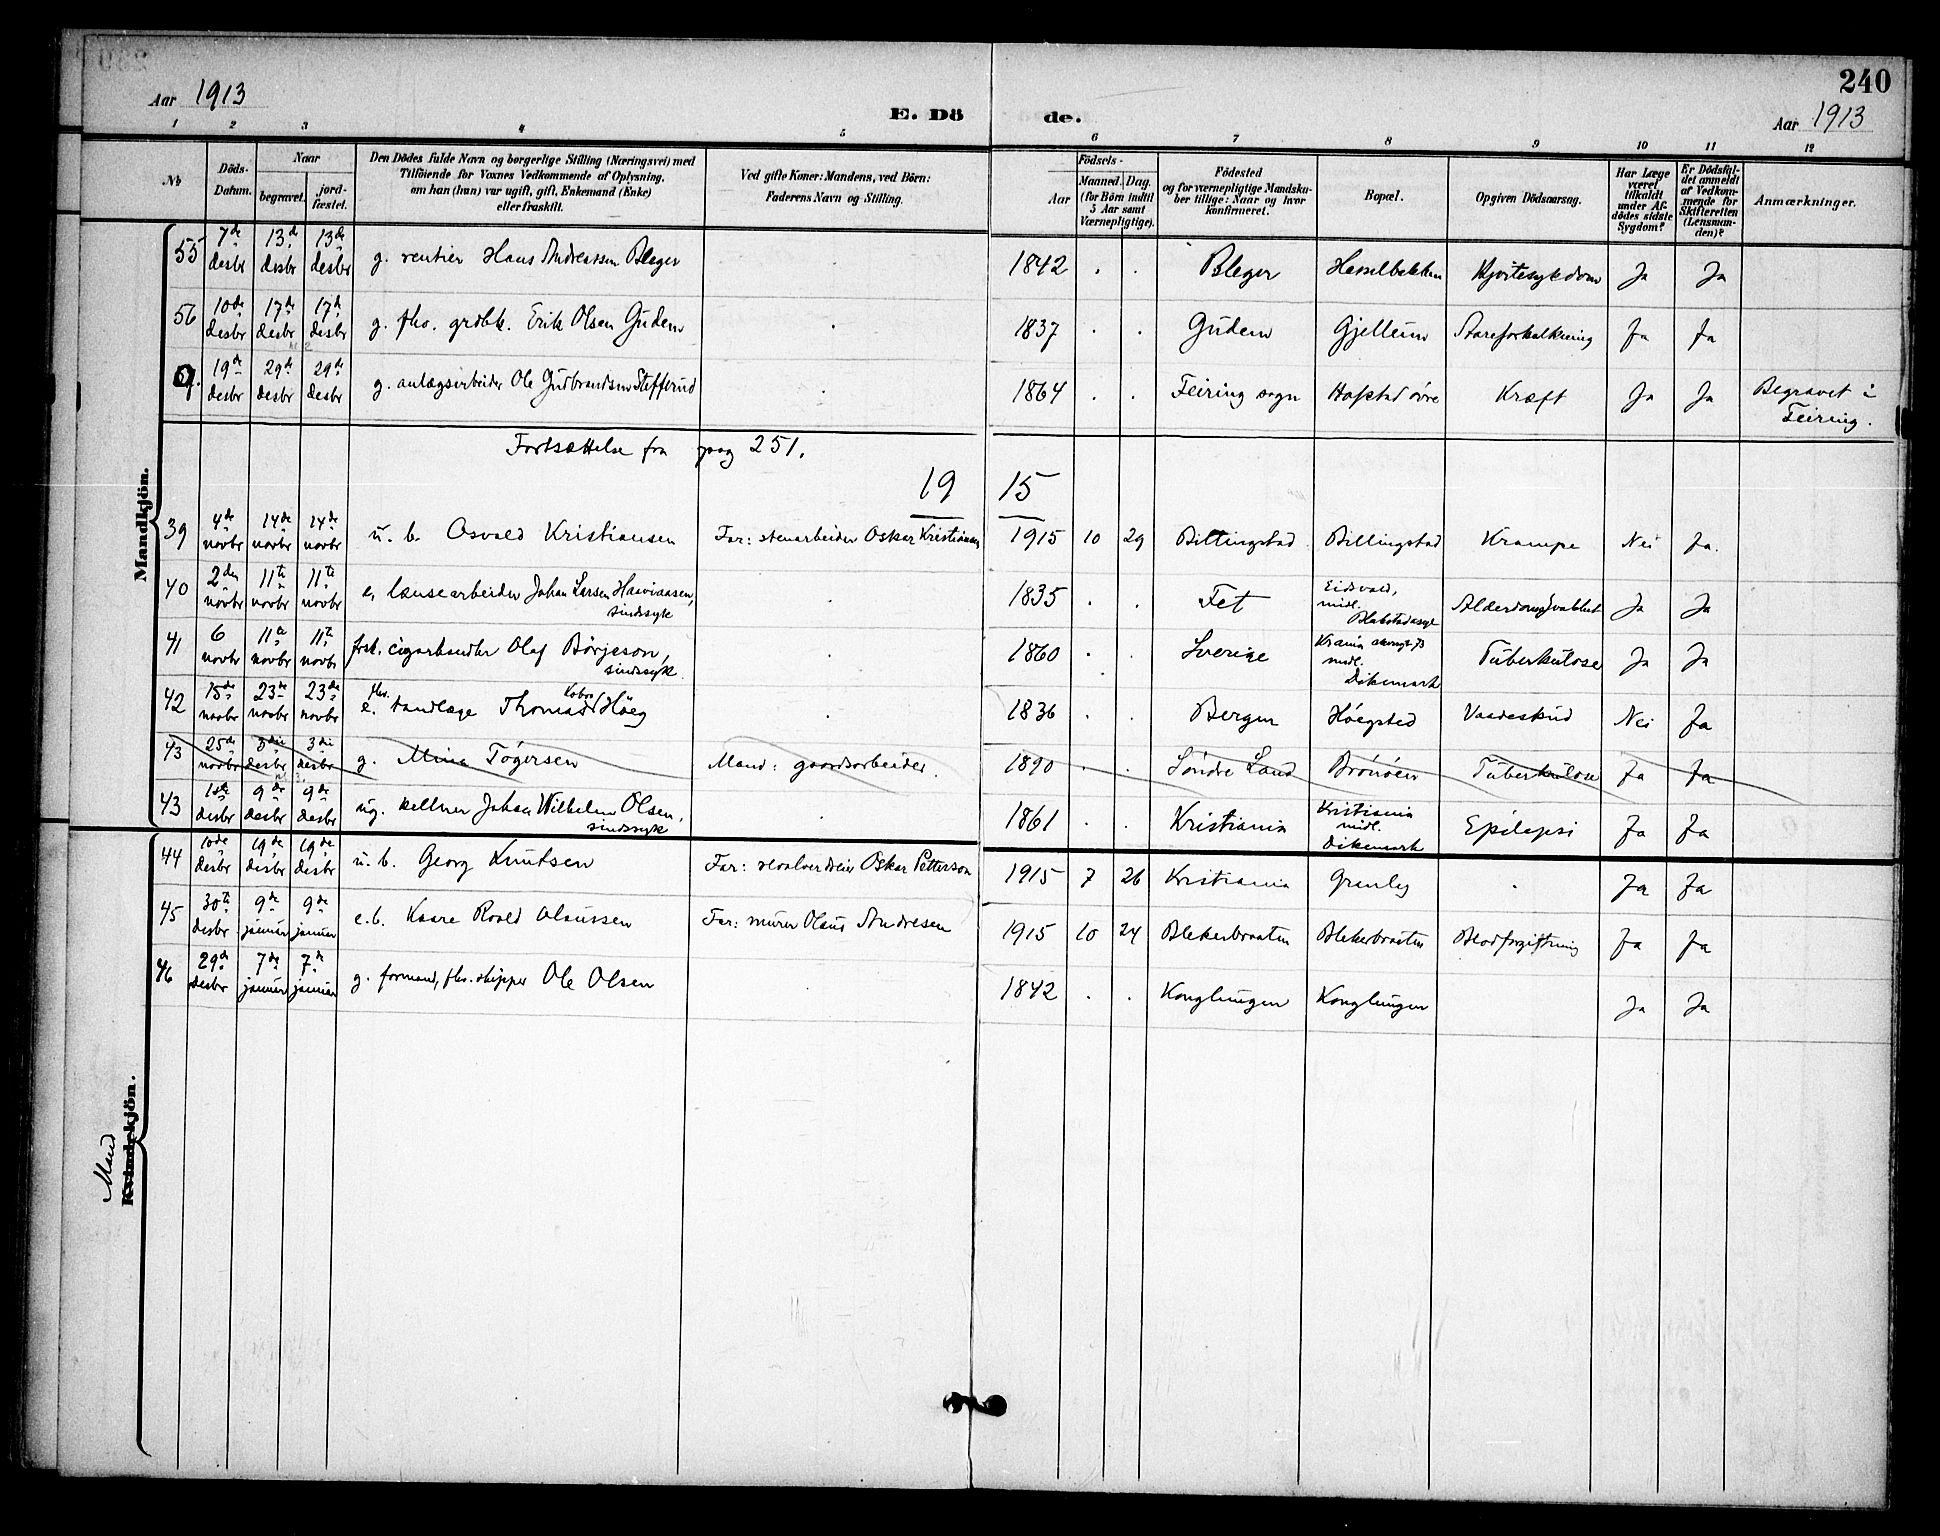 240
Aar 1913
E. Dö de.
Aar 1913
1 2 3 4 5 6 7 8 9 10 11 12
No
Döds-Datum.
Naar
begravet.
jord-fæstet.
Den Dödes fulde Navn og borgerlige Stilling (Næringsvei) med
Tilföiende for Voxnes Vedkommende af Oplysning,
om han (hun) var ugift, gift, Enkemand (Enke)
eller fraskilt.
Ved gifte Koner: Mandens, ved Börn:
Faderens Navn og Stilling.
Födsels-
Aar
Maaned. Dag.
(for Börn indtil
5 Aar samt
Værnepligtige).
Födested
og for værnepligtige Mandska-
ber tillige: Naar og hvor
konfirmeret.
Bopæl.
Opgiven Dödsaarsag.
Har Læge
været
tilkaldt
under Af-
dödes sidste
Sygdom?
Er Dödsfal-
det anmeldt
af Vedkom-
mende for
Skifteretten
(Lensman-
den)?
Anmærkninger.
Mandkjön.
55 7de desbr 13de desbr 13de desbr g. rentier Hans Andreassen Bleger 1842 Bleger Hasselbakken Hjertesykdom Ja Ja
56 10de desbr 17de desbr 17de desbr g. fhv. grdbk. Erik Olsen Gudem 1837 Gudem Gjellum Aareforkalkning Ja Ja
19de desbr 29de desbr 29de desbr g. anlægsarbeider Ole Gudbrandsen Stefferud 1864 Feiring sogn Hofstad øvre Kræft Ja Ja Begravet i
Feiring.
Fortsættelse fra pag 251.
19 15
39 4de novbr 14de novbr 14de novbr u. b. Osvald Kristiansen Far: stenarbeider Oskar Kristiansen 1915 10 29 Billingstad Billingstad Krampe Nei Ja.
40 2den novbr 11te novbr 11te novbr e. lænsearbeider Johan Larsen sindssyk 1835 Fet Eidsvold, midl. Blakstad asyl Ja Ja
41 6 novbr 11te novbr 11te novbr frsk. cigarhandler Olaf Börjeson, sindssyk 1860 Sverige midl. Dikemark Tuberkulose Ja Ja
42 15de novbr 23de novbr 23de novbr fhv. e. tandlæge Thomas Høeg 1836 Bergen Høegsted Vaadeskud Nei Ja
43 25de novbr 3die desbr 3die desbr g. Mina Tøgersen Mand: gaardsarbeider. 1890 Søndre Land Brønøen Tuberkulose Ja Ja
43 1ste desbr 9de desbr 9de desbr ug. kellner Johan Wilhelm Olsen, sindssyk 1861 Kristiania Kristiania midl. Dikemark Epilepsi Ja Ja
Mand
Kvindekjön.
44 10de desbr 19de desbr 19de desbr u. b. Georg Knutsen Far: revolverdreier Oskar Petterson 1915 7 26 Kristiania Granly Ja Ja
45 30te desbr 9de januar 9de januar e. b. Kaare Roald Olaussen Far: murer Olaus Andresen 1915 10 24 Blekerbraaten Blekerbraaten Blodforgiftning Ja Ja
46 29de desbr 7de januar 7de januar g. formand, fhv. skipper Ole Olsen 1842 Konglungen Konglungen Ja Ja